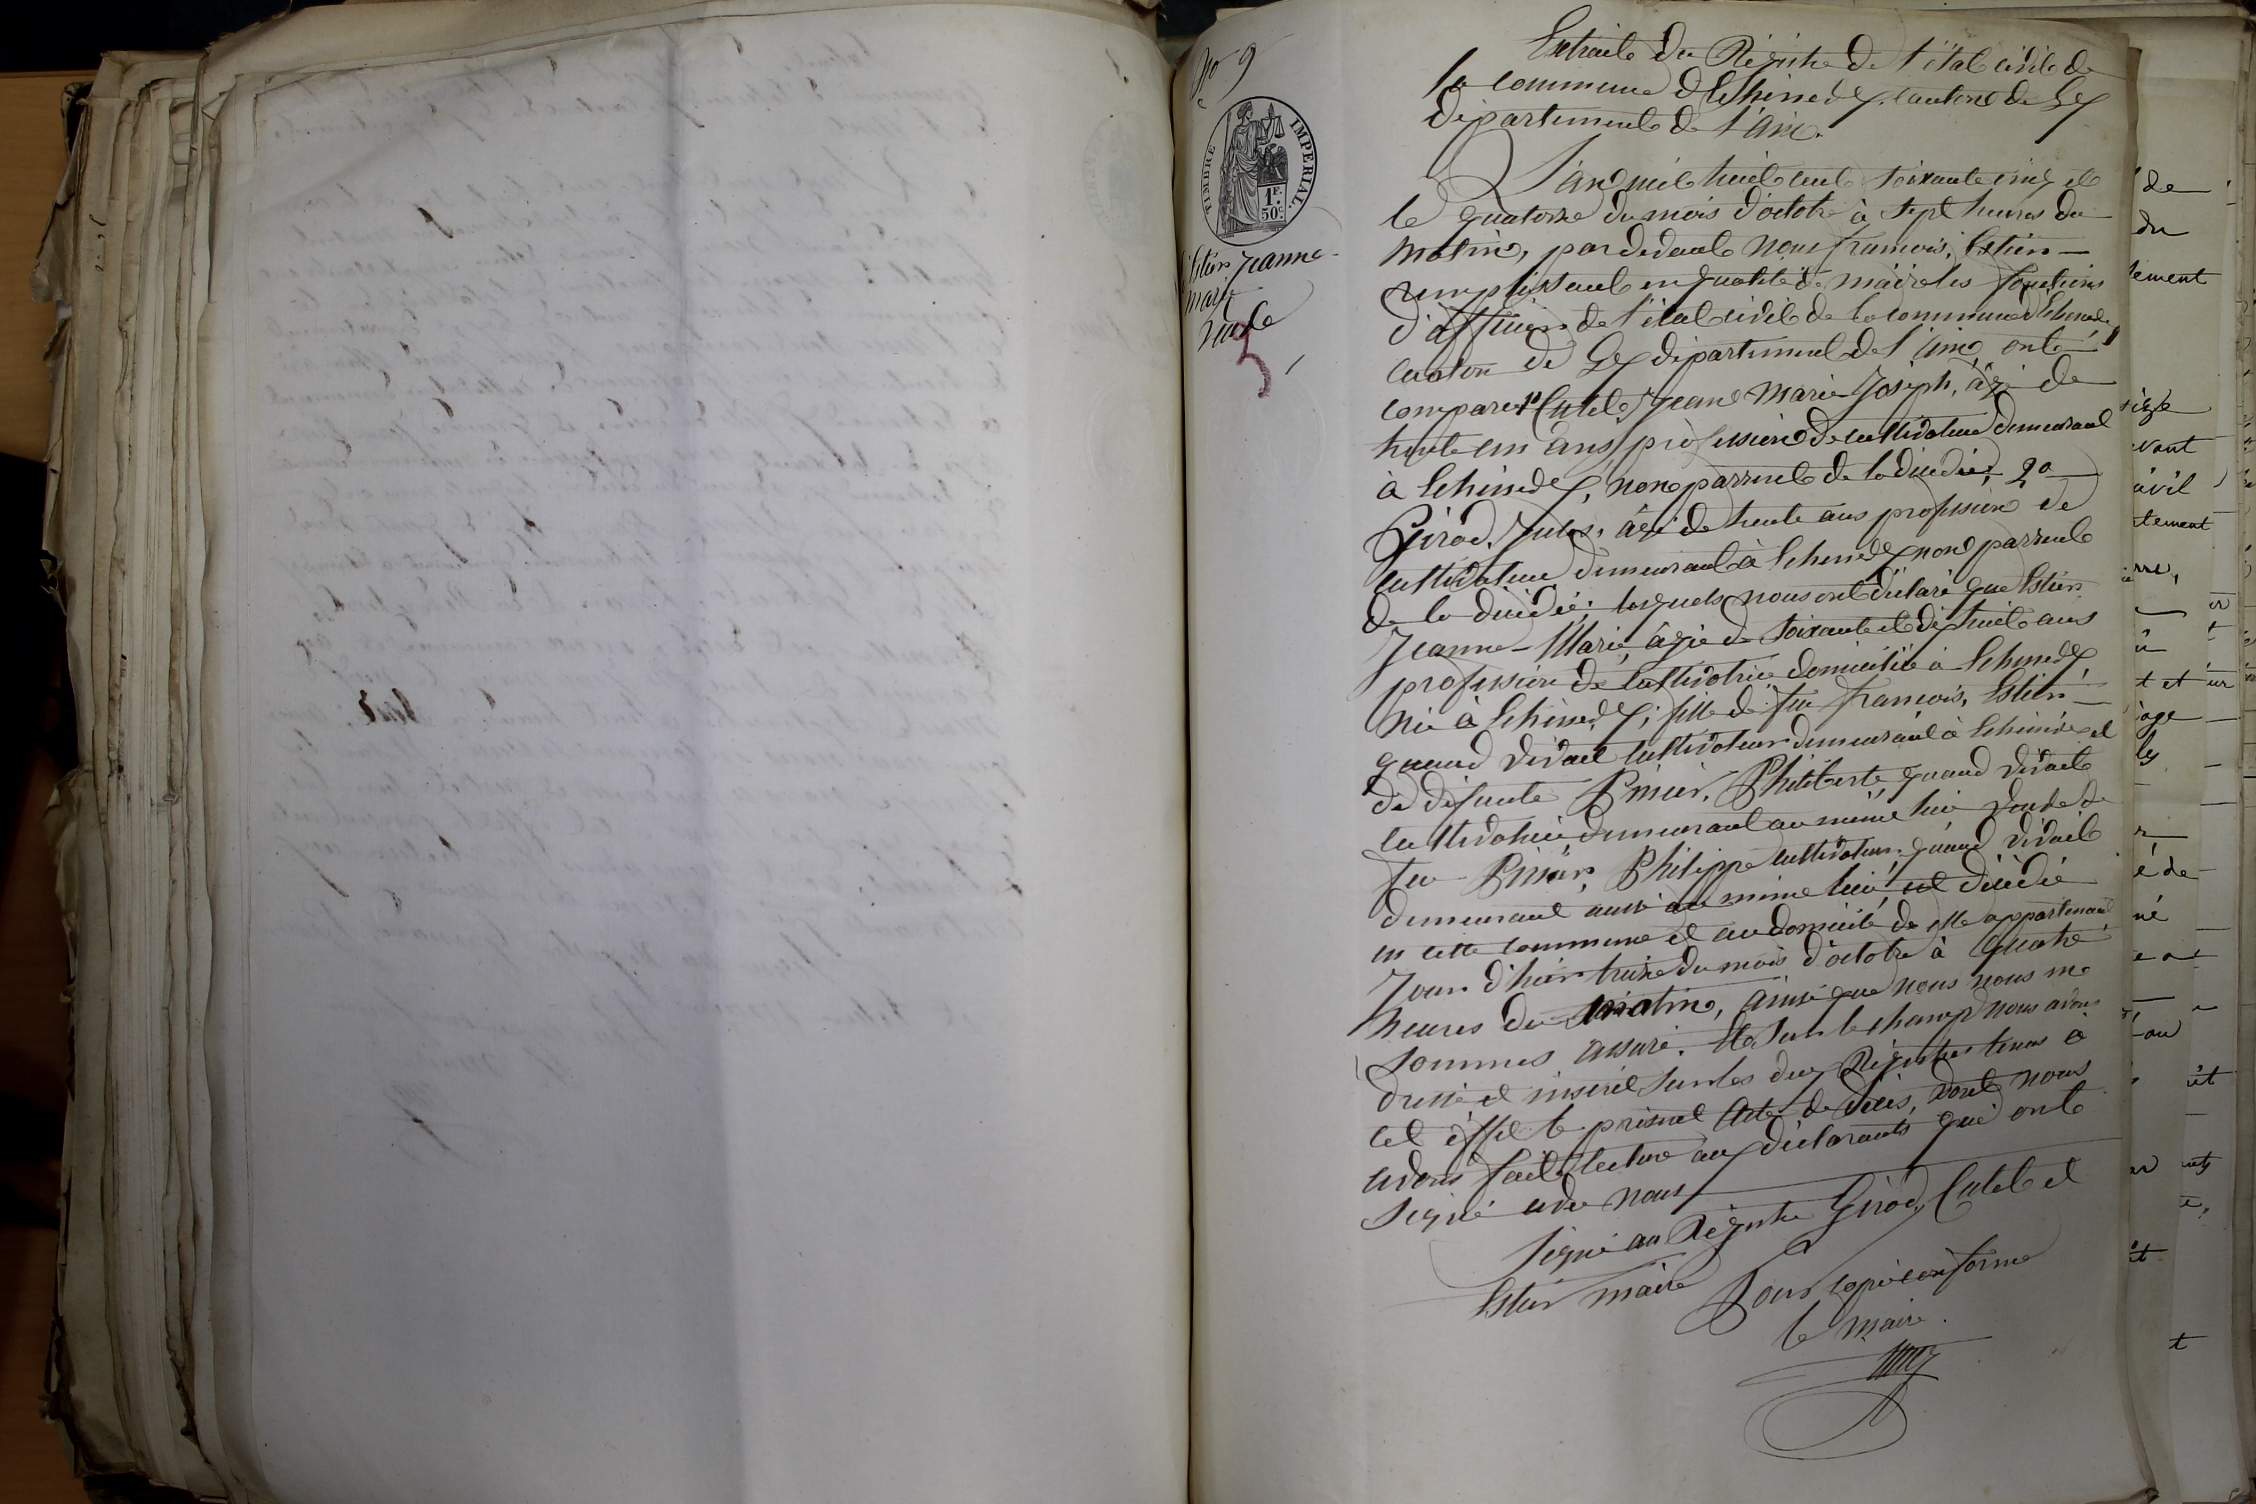 No 9
TIMBRE IMPERIAL.
1F.
50c.
Estier Jeanne-
Marie
Veuve
5
Extrait du Régistre de l'état civil de
la commune d'Echenevex canton de Gex
département de l'Ain.
L'an mil huit cent soixante cinq et
le quatorze du mois d'octobre à sept heures du
matin, pardevant nous françois, Estier
remplissant en qualité de maire les fonctions
d'officier de l'état civil de la commune d'Echenevex
canton de Gex département de l'Ain, ont
comparu 1º Catel, Jean Marie Joseph, âgé de
trente un ans profession de cultivateur demeurant
à Echenevex, non parrent de la décédée, 2º
Girod, Jules, âgé de trente ans profession de
cultivateur demeurant à Echenevex non parrent
de la décédée; lesquels nous ont déclaré que Estier
Jeanne-Marie, âgée de soixante et dix huit ans
profession de cultivatrice domiciliée à Echenevex
née à Echenevex; fille de feu françois, Estier
quand vivait cultivateur demeurant à Echenevex et
de défunte Prisier, Philiberte, quand vivait
cultivatrice, demeurant au même lieu veuve de
feu Philippe cultivateur quand vivait
demeurant aussi au même lieu, est décédée
en cette commune et au domicile de elle appartenant
Jour d'hier treize du mois d'octobre à quatre
heures du matin, ainsi que nous nous me
sommes assuré. Et sur le champ nous avons
dressé et inscrit sur les deux Régistres tenus à
cet éffet le présent Acte de décès, dont nous
avons fait lecture aux déclarants qui ont
signé avec nous
Signé au Régistre Girod, Catel et
Estier maire
Pour copie conforme
le maire
de
du
ement
vant
ivil
tement
t et
age
é de
né